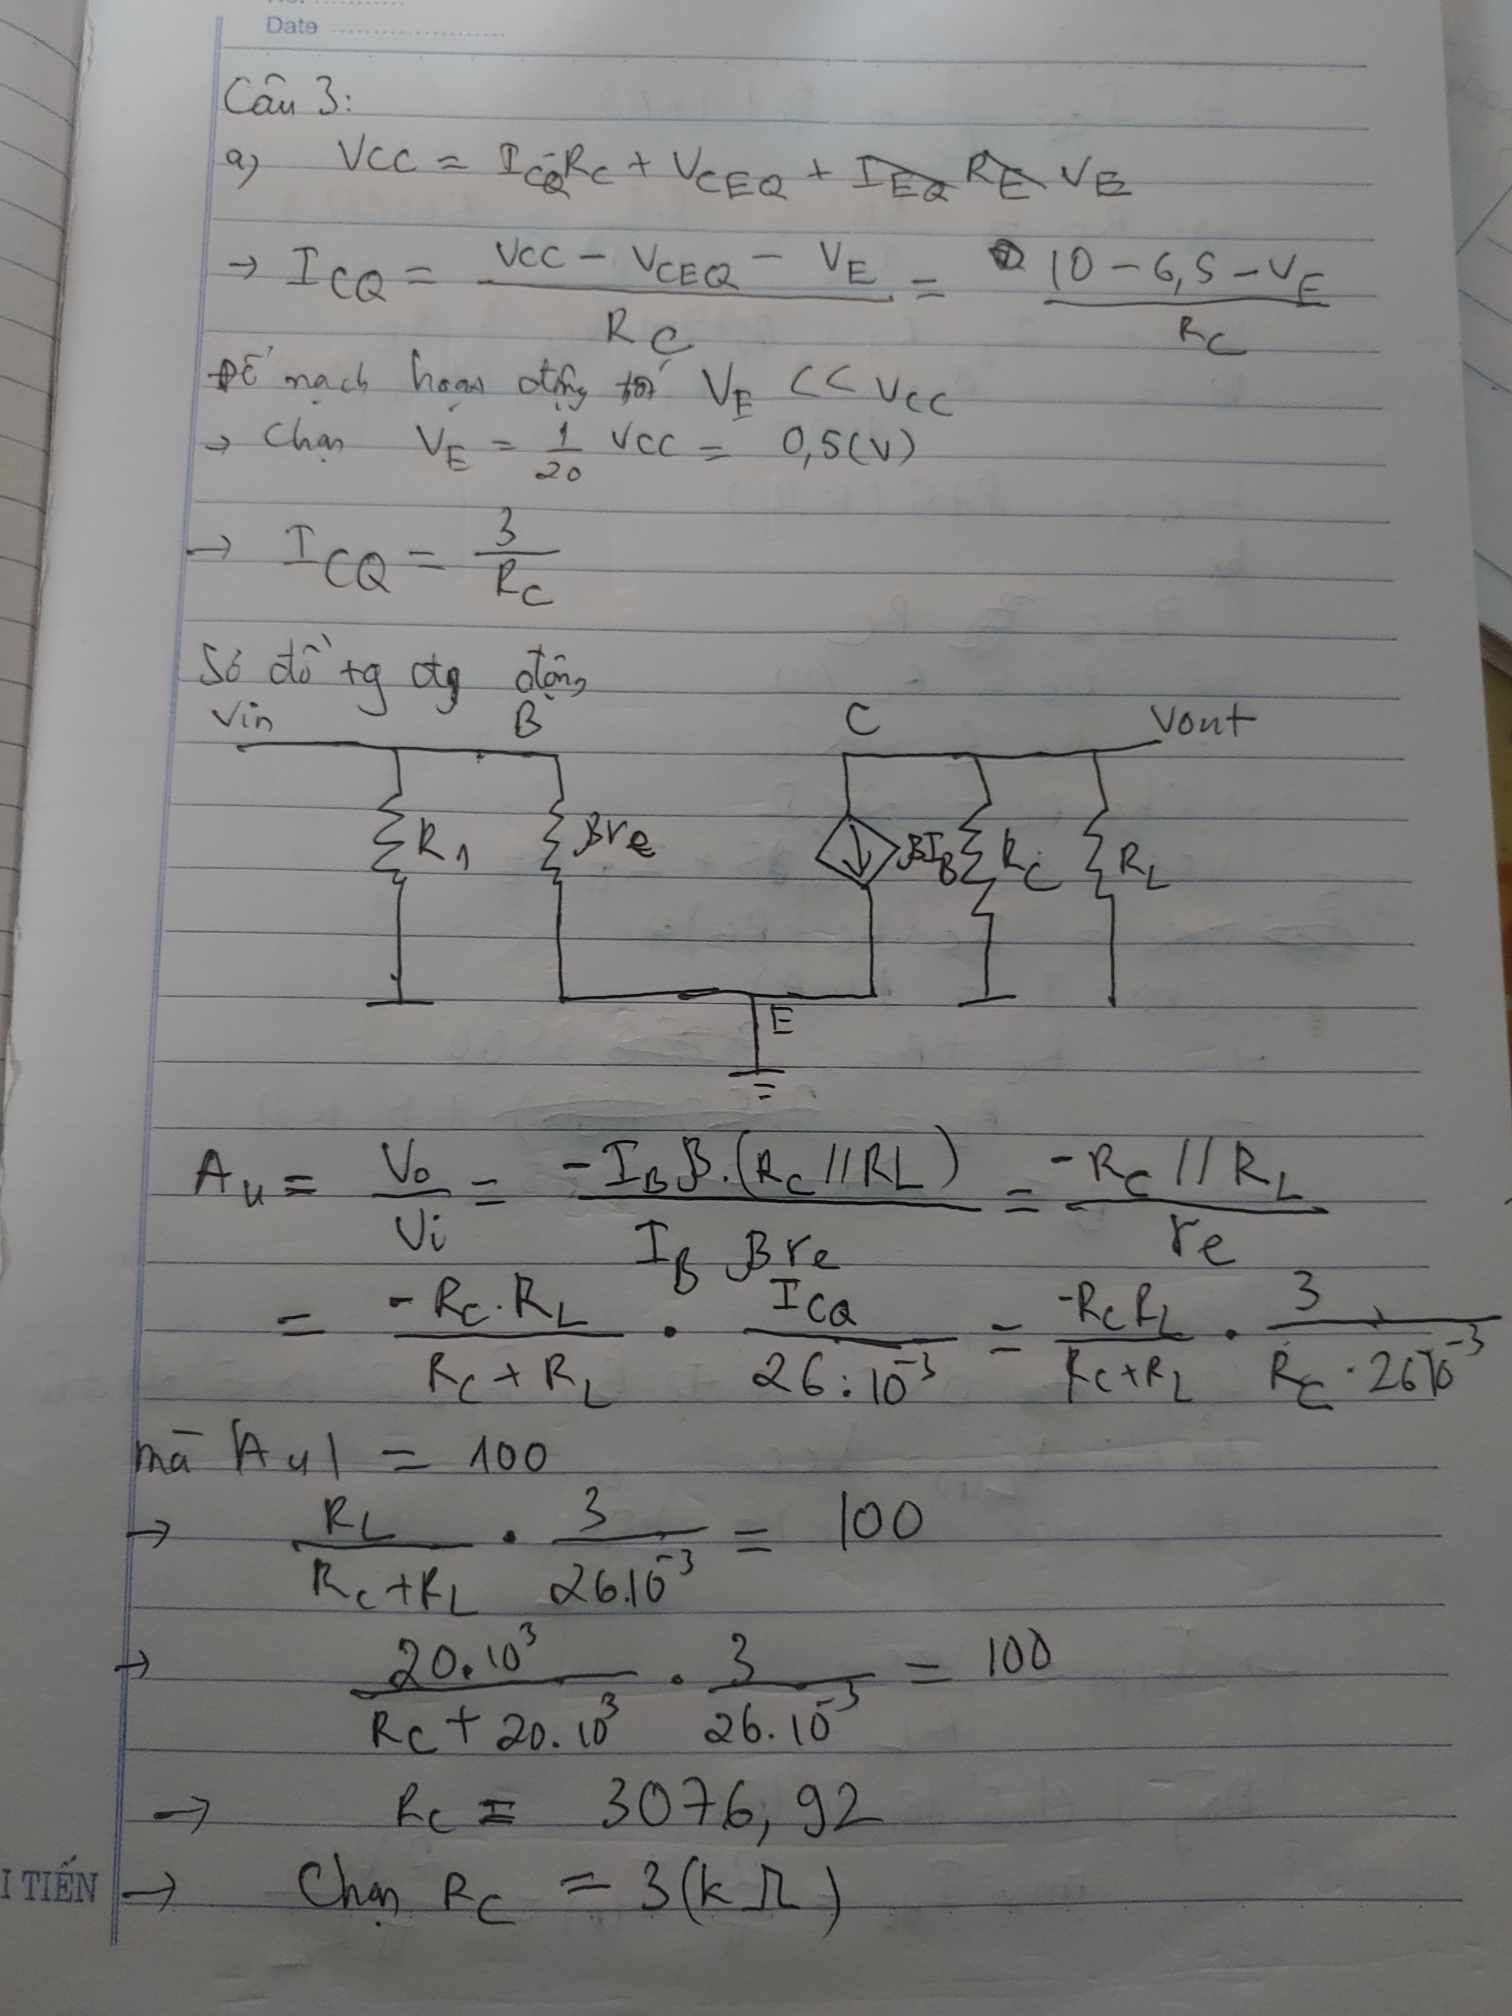 Date
Câu 3:
a) VCC = I_CQ R_C + V_CEQ + I_EQ R_E V_E
→ I_CQ = (VCC - V_CEQ - V_E) / R_C = (10 - 6,5 - V_E) / R_C
Để mạch hoạt động tốt V_E << V_CC
→ Chọn V_E = 1/20 VCC = 0,5 (V)
→ I_CQ = 3 / R_C
Sơ đồ tg đg động
Vin B C Vout
R_1 βr_e βI_B R_C R_L
E
A_u = V_o / V_i = -I_B β.(R_C // RL) / I_B βr_e = -R_C // R_L / r_e
= -R_C.R_L / R_C + R_L . I_CQ / 26.10^-3 = -R_C R_L / R_C + R_L . 3 / R_C.26 10^-3
mà |A_u| = 100
→ R_L / R_C + R_L . 3 / 26.10^-3 = 100
→ 20.10^3 / R_C + 20.10^3 . 3 / 26.10^-3 = 100
→ R_C = 3076,92
I TIẾN → Chọn R_C = 3 (kΩ)